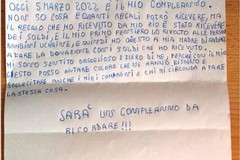 OGGI 5 MARZO 2022 È IL MIO COMPLEANNO.
NON SO COSA E QUANTI REGALI POTRÒ RICEVERE, MA
IL REGALO CHE HO RICEVUTO DA MIO ZIO È STATO RICEVERE
DEI SOLDI, E IL MIO PRIMO PENSIERO LO RIVOLTO ALLE PERSONE
BAMBINI UCRAINE, E QUINDI HO CHIESTO A MIA MADRE DI
FARE LA DONAZIONE CON I SOLDI CHE HO RICEVUTO.
MI SONO SENTITO ORGOGLIOSO E FIERO DI ME, PERCHÉ CON IL MIO
GESTO POSSO AIUTARE COLORO CHE NE HANNO BISOGNO E
ANCHE I MIEI COMPAGNI E CHI MI CIRCONDA A FARE
LA STESSA COSA.
SARÀ UN COMPLEANNO DA
RICORDARE!!!